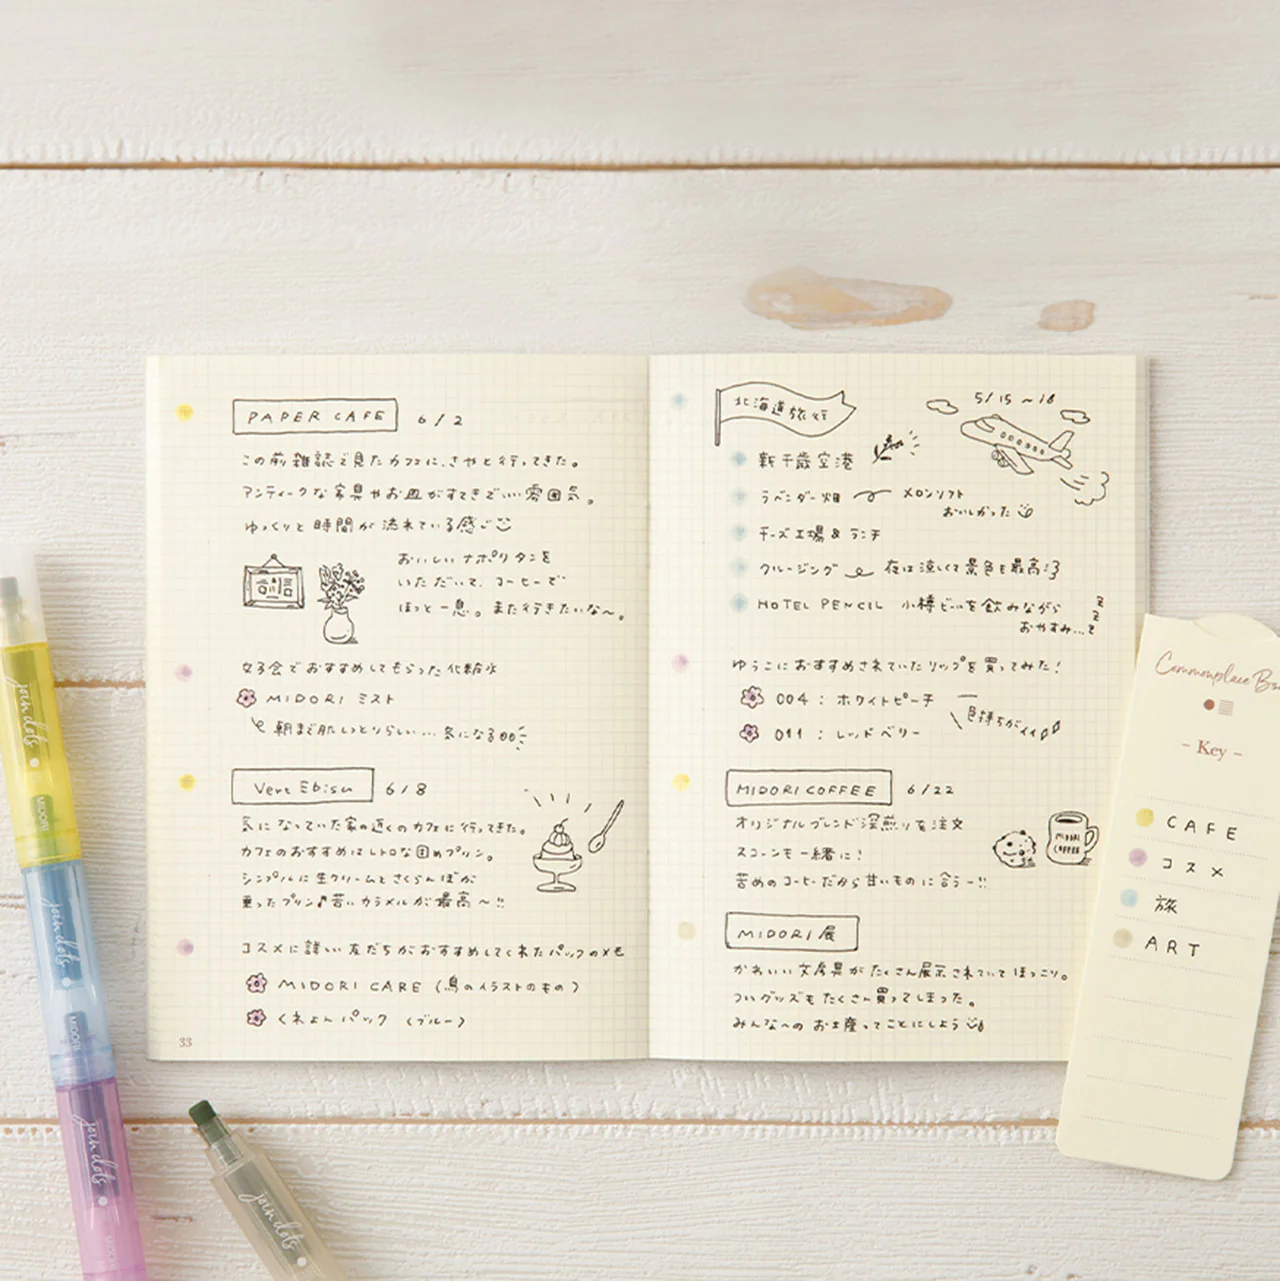 PAPER CAFE 6/2
この前雑誌で見たカフェに、さやと行ってきた。
アンティークな家具やお皿がすてきでいい雰囲気。
ゆっくりと時間が流れている感じ
おいしいナポリタンを
いただいて、コーヒーで
ほっと一息。また行きたいな〜。
女子会でおすすめしてもらった化粧水
MIDORI ミスト
朝まで肌しっとりらしい...気になる
Vert Ebisu 6/8
気になっていた家の近くのカフェに行ってきた。
カフェのおすすめはレトロな固めプリン。
シンプルに生クリームとさくらんぼが
乗ったプリン♪苦いカラメルが最高〜!!
コスメに詳しい友だちがおすすめしてくれたパックのメモ
MIDORI CARE (鳥のイラストのもの)
くれよんパック (ブルー)
33
北海道旅行
5/15〜18
新千歳空港
ラベンダー畑 メロンソフト
おいしかった
チーズ工場&ランチ
クルージング 夜は涼しくて景色も最高
HOTEL PENCIL 小樽ビールを飲みながら
おやすみ...zzzz
ゆうこにおすすめされていたリップを買ってみた!
004:ホワイトピーチ
色持ちがイイ
011:レッドベリー
MIDORI COFFEE 6/22
オリジナルブレンド深煎りを注文
スコーンも一緒に!
苦めのコーヒーだから甘いものに合うー!!
MIDORI COFFEE
MIDORI展
かわいい文房具がたくさん展示されていてほっこり。
ついグッズもたくさん買ってしまった。
みんなへのお土産ってことにしよう
Commonplace
- Key -
CAFE
コスメ
旅
ART
join dots
MIDORI
join dots
MIDORI
join dots
join dots